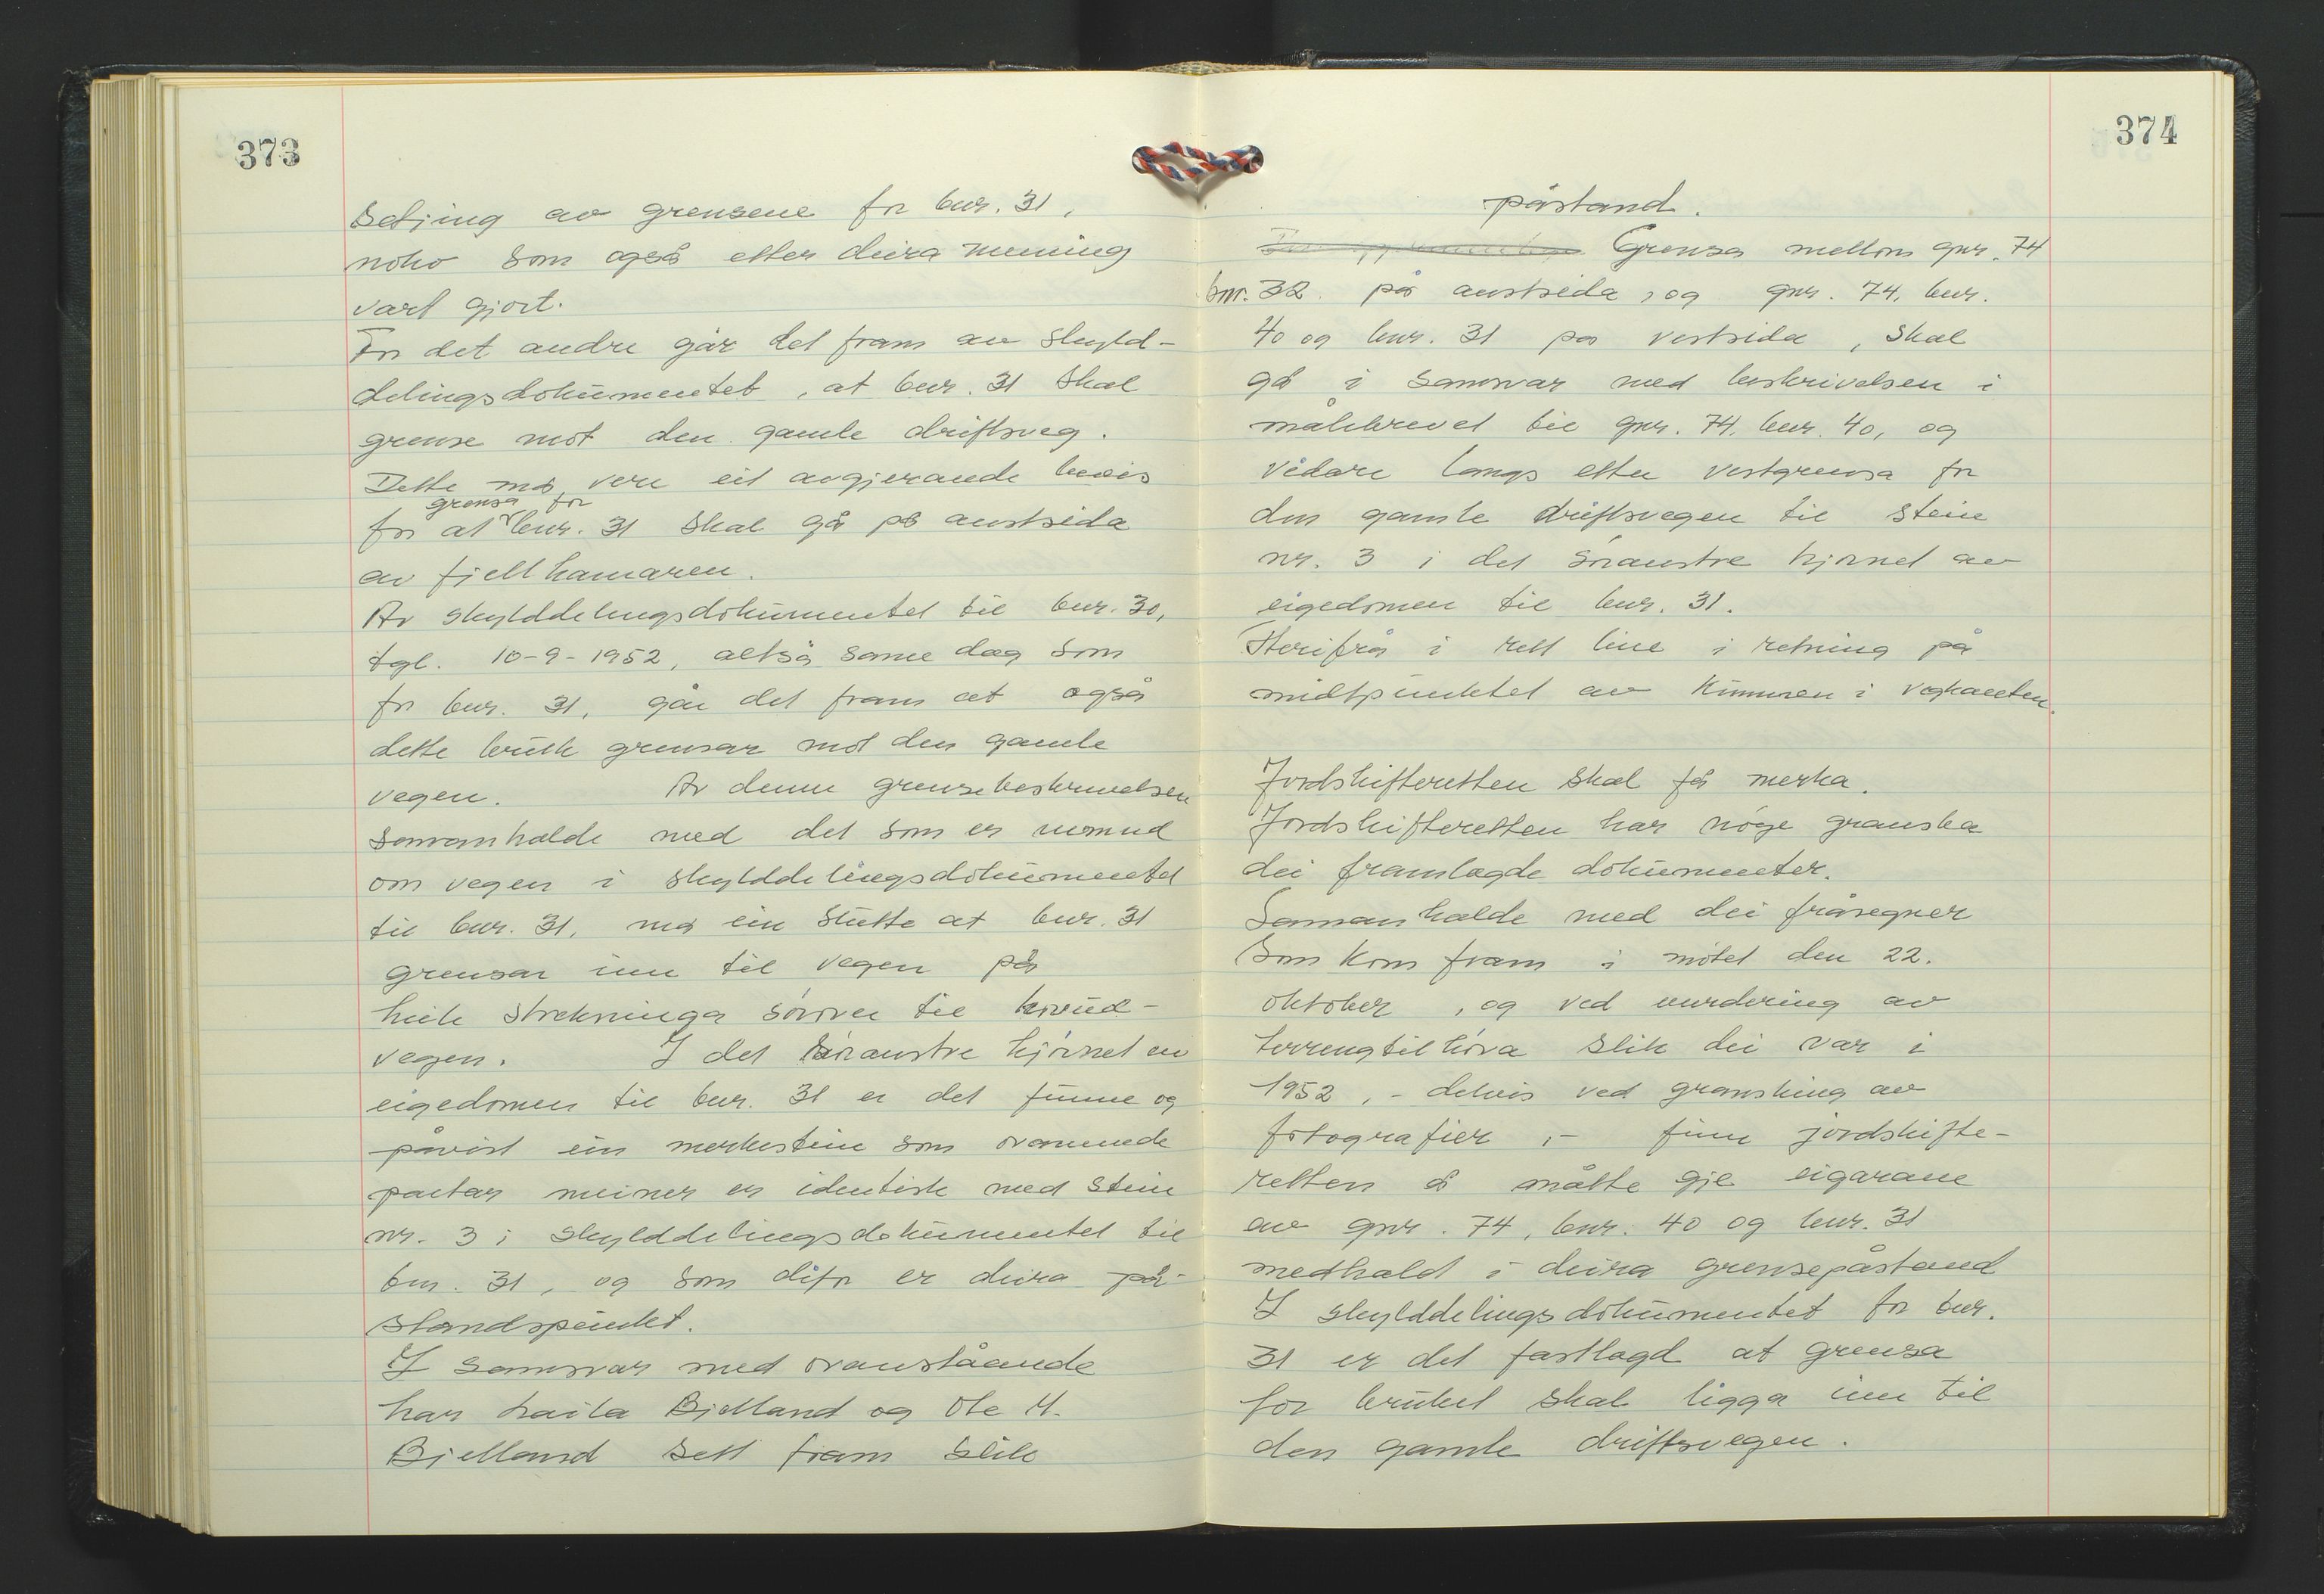 373
setjing av grensene for bnr. 31,
noko som også etter deira meining
vart gjort.
For det andre går det fram av skyld-
delingsdokumentet, at bnr. 31 skal
grense mot den gamle driftsveg.
Dette må vere eit avgjerande bevis
grensa for
for at bnr. 31 skal gå på austsida
av fjellhamaren.
Av skylddelingsdokumentet til bnr. 30,
tgl. 10-9-1952, altså same dag som
for bnr. 31, går det fram at også
dette bruk grensar mot den gamle
vegen. Av denne grensebeskrivelsen
samanhalde med det som er nemnd
om vegen i skylddelingsdokumentet
til bnr. 31, må ein slutte at bnr. 31
grensar inn til vegen på
heile strekninga sörover til hovud-
vegen. I det söraustre hjörnet av
eigedomen til bnr. 31 er det funne og
påvist ein merkestein som ovannemde
partar meiner er identisk med stein
nr. 3 i skylddelingsdokumentet til
bnr. 31, og som difor er deira på-
standspunkt.
I samsvar med ovanståande
har Laila Bjelland og Ole H.
Bjelland sett fram slik
374
påstand.
Grensa mellom gnr. 74
bnr. 32 på austsida, og gnr. 74, bnr.
40 og bnr. 31 på vestsida, skal
gå i samsvar med beskrivelsen i
målebrevet til gnr. 74, bnr. 40, og
vidare langs etter vestgrensa for
den gamle driftsvegen til stein
nr. 3 i det söraustre hjörnet av
eigedomen til bnr. 31.
Herifrå i rett line i retning på
midtpunktet av kummen i vegkanten.
Jordskifteretten skal få merka.
Jordskifteretten har nöye granska
dei framlagde dokumenter.
Samanhalde med dei fråsegner
som kom fram i mötet den 22.
oktober, og ved vurdering av
terrengtilhöva slik dei var i
1952, - delvis ved gransking av
fotografier, - finn jordskifte-
retten å måtte gje eigarane
av gnr. 74, bnr. 40 og bnr. 31
medhald i deira grensepåstand
I skylddelingsdokumentet for bnr.
31 er det fastlagd at grensa
for bruket skal ligga inn til
den gamle driftsvegen.